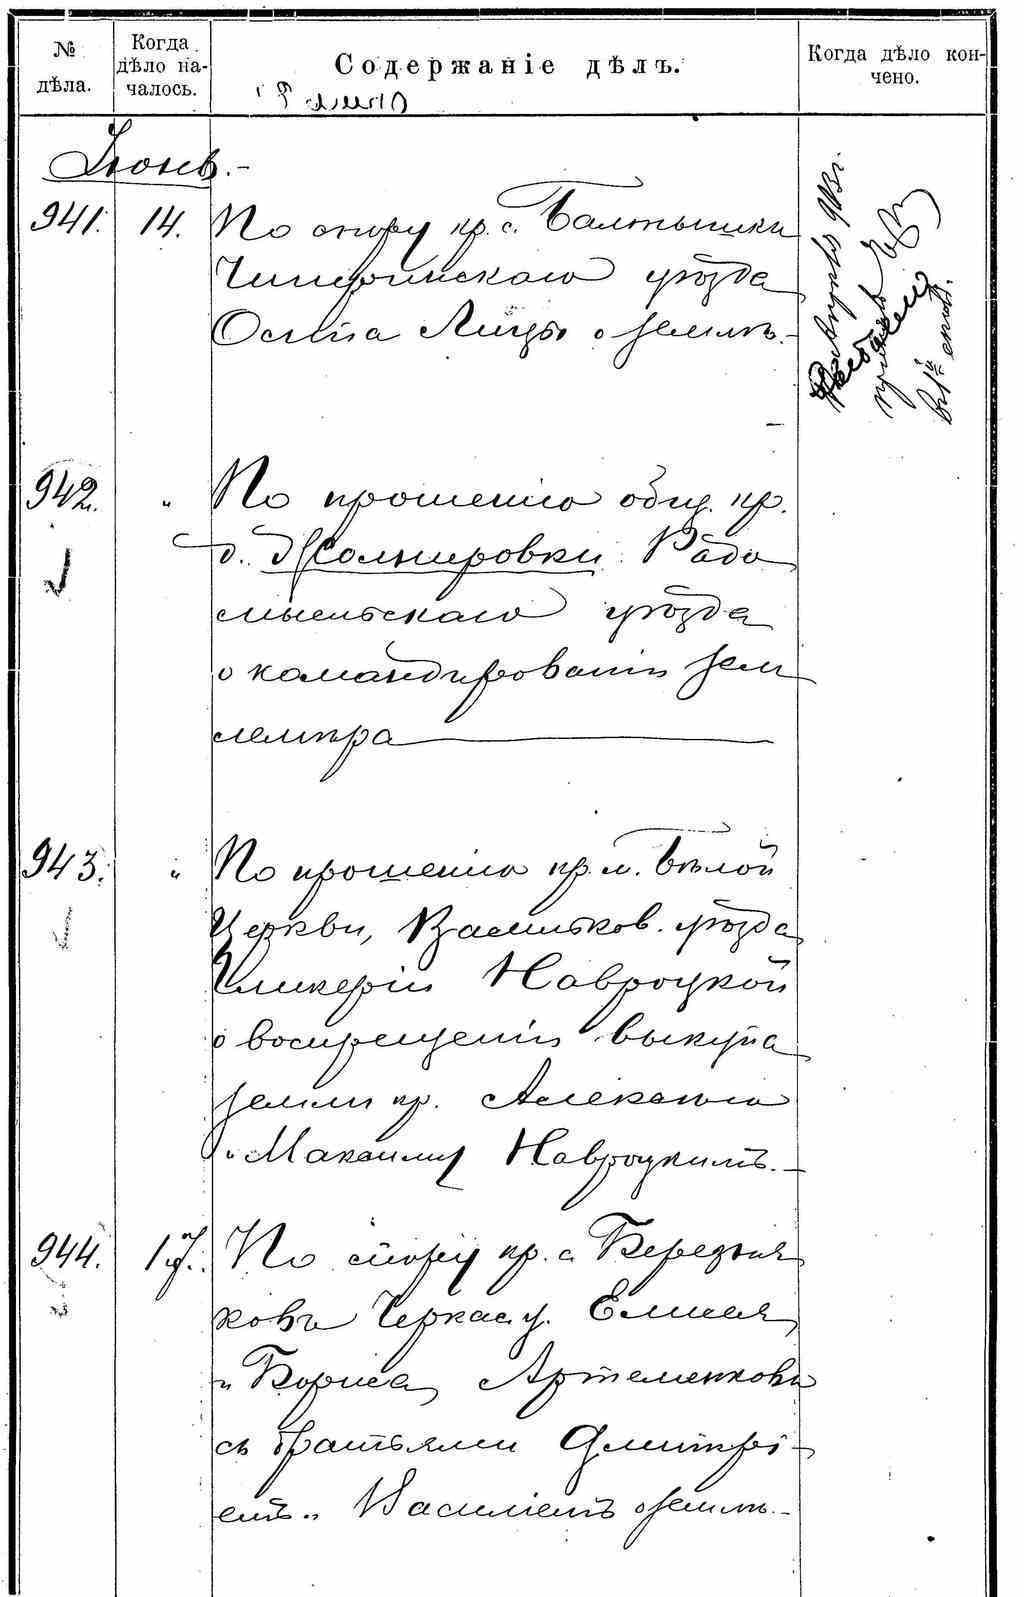 № дѣла.
Когда дѣло на-
чалось.
Содержаніе дѣлъ.
Когда дѣло кон-
чено.
Іюнь.
941. 14. По спору кр. с. Балтышки
Чигиринскаго уѣзда
Осипа Лицы о землѣ.
942. " По прошенію общ. кр.
д. Жолнировки Радо
мысльскаго уѣзда
о командированіи зем
лемѣра
943. " По прошенію кр. м. Бѣлой
Церкви, Васильков. уѣзда
Гликеріи Навроцкой
о воспрещеніи выкупа
земли кр. Алексѣю
и Максиму Навроцкимъ.
944. 17. По спору кр. с. Березня
ковъ Черкас. у. Елисея
и Бориса Артеменковъ
съ братьями Дмитрі-
емъ и Василіемъ о землѣ.